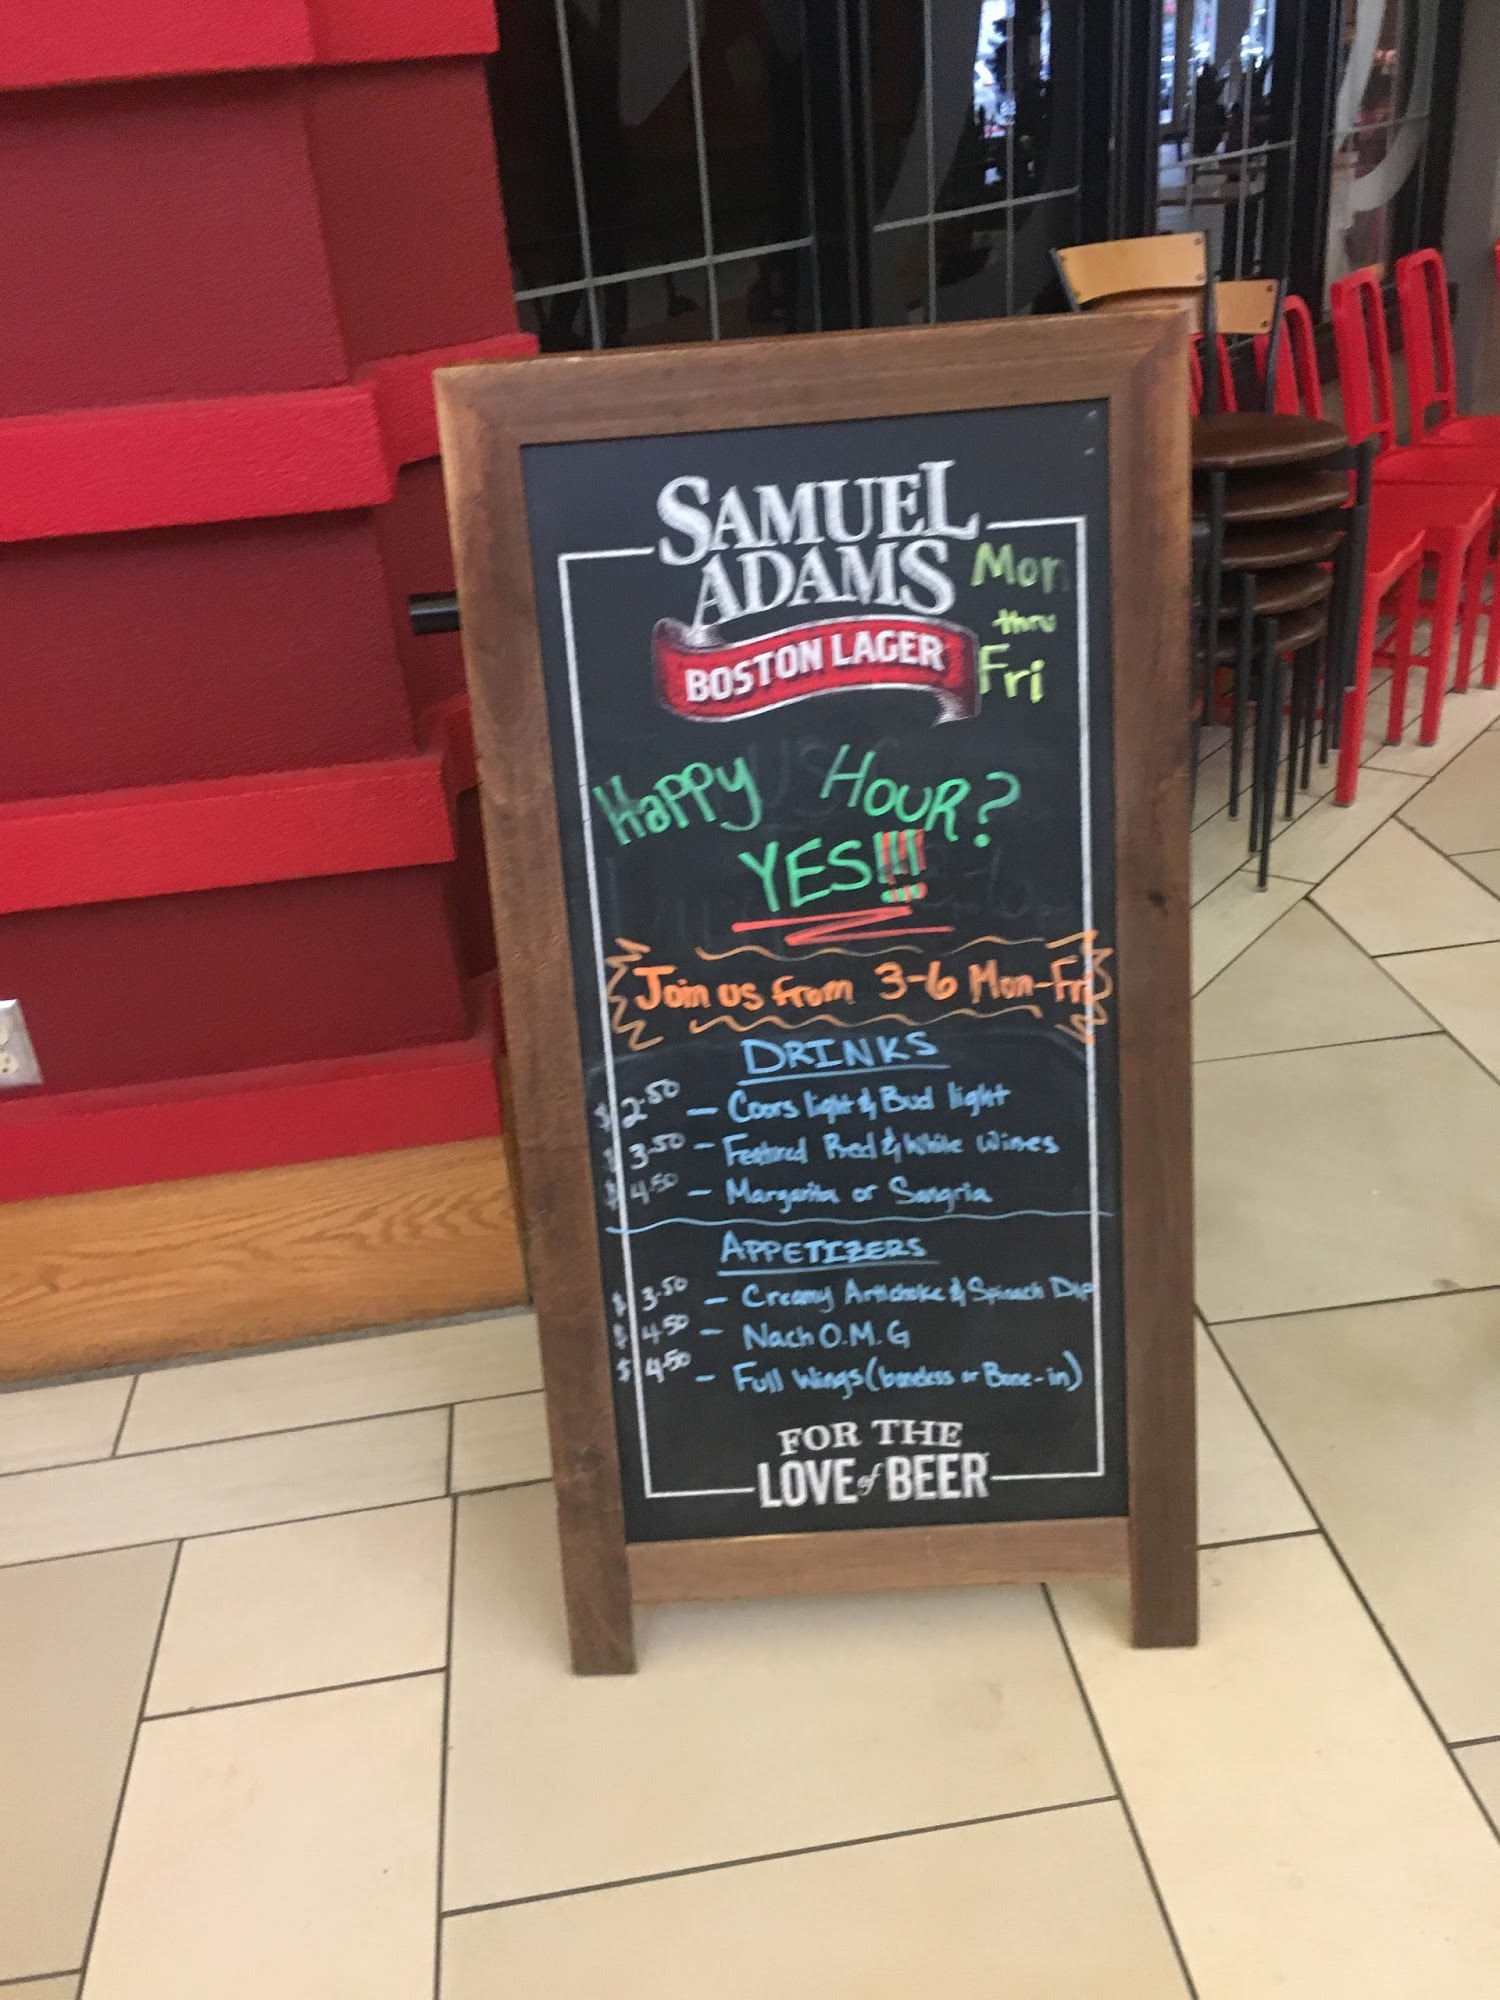 SAMUEL
ADAMS
BOSTON LAGER
Mon
thru
Fri
Happy HOUR?
YES!!!
Join us from 3-6 Mon-Fri
DRINKS
$2.50 — Coors light & Bud light
$3.50 — Featured Red & White Wines
$4.50 — Margarita or Sangria
APPETIZERS
$3.50 — Creamy Artichoke & Spinach Dip
$4.50 — Nach O.M.G
$4.50 — Full Wings (boneless or Bone-in)
FOR THE
LOVE of BEER